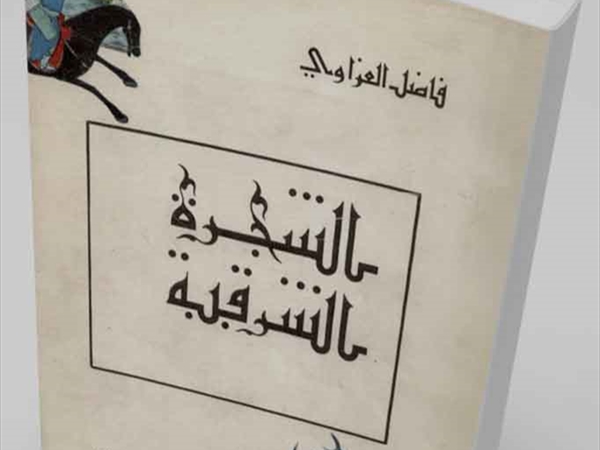 فاضل العزاوي
الشجرة
الشرقية